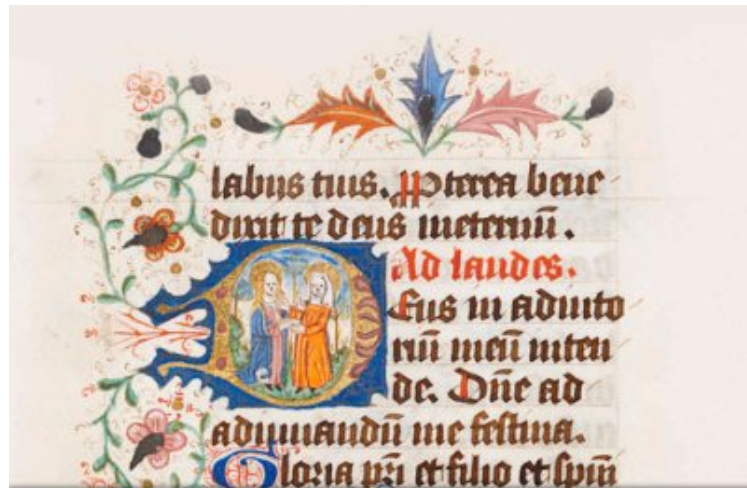 labijs tuis. Pterea bene
dixit te deus ineternū.
Ad laudes.
Deus in adiuto
riū meū inten
de. Dn̄e ad
adiuuandū me festina.
Gloria pr̄i et filio et spiri